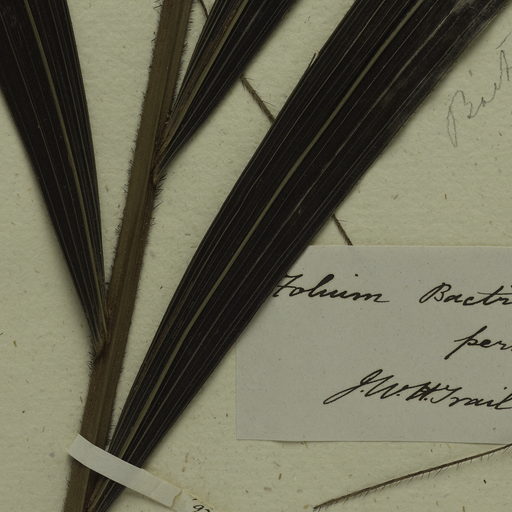 Bact
Folium Bactri
per
J.W.H. Trail